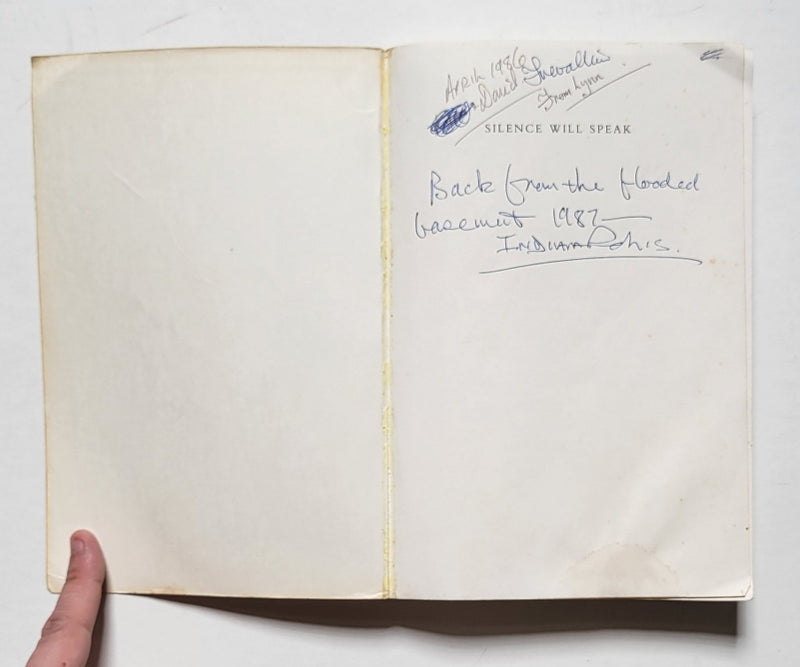 APRIL 1986
David Trevallion
From Lynn
SILENCE WILL SPEAK
Back from the flooded
basement 1987—
INDIANAPOLIS.